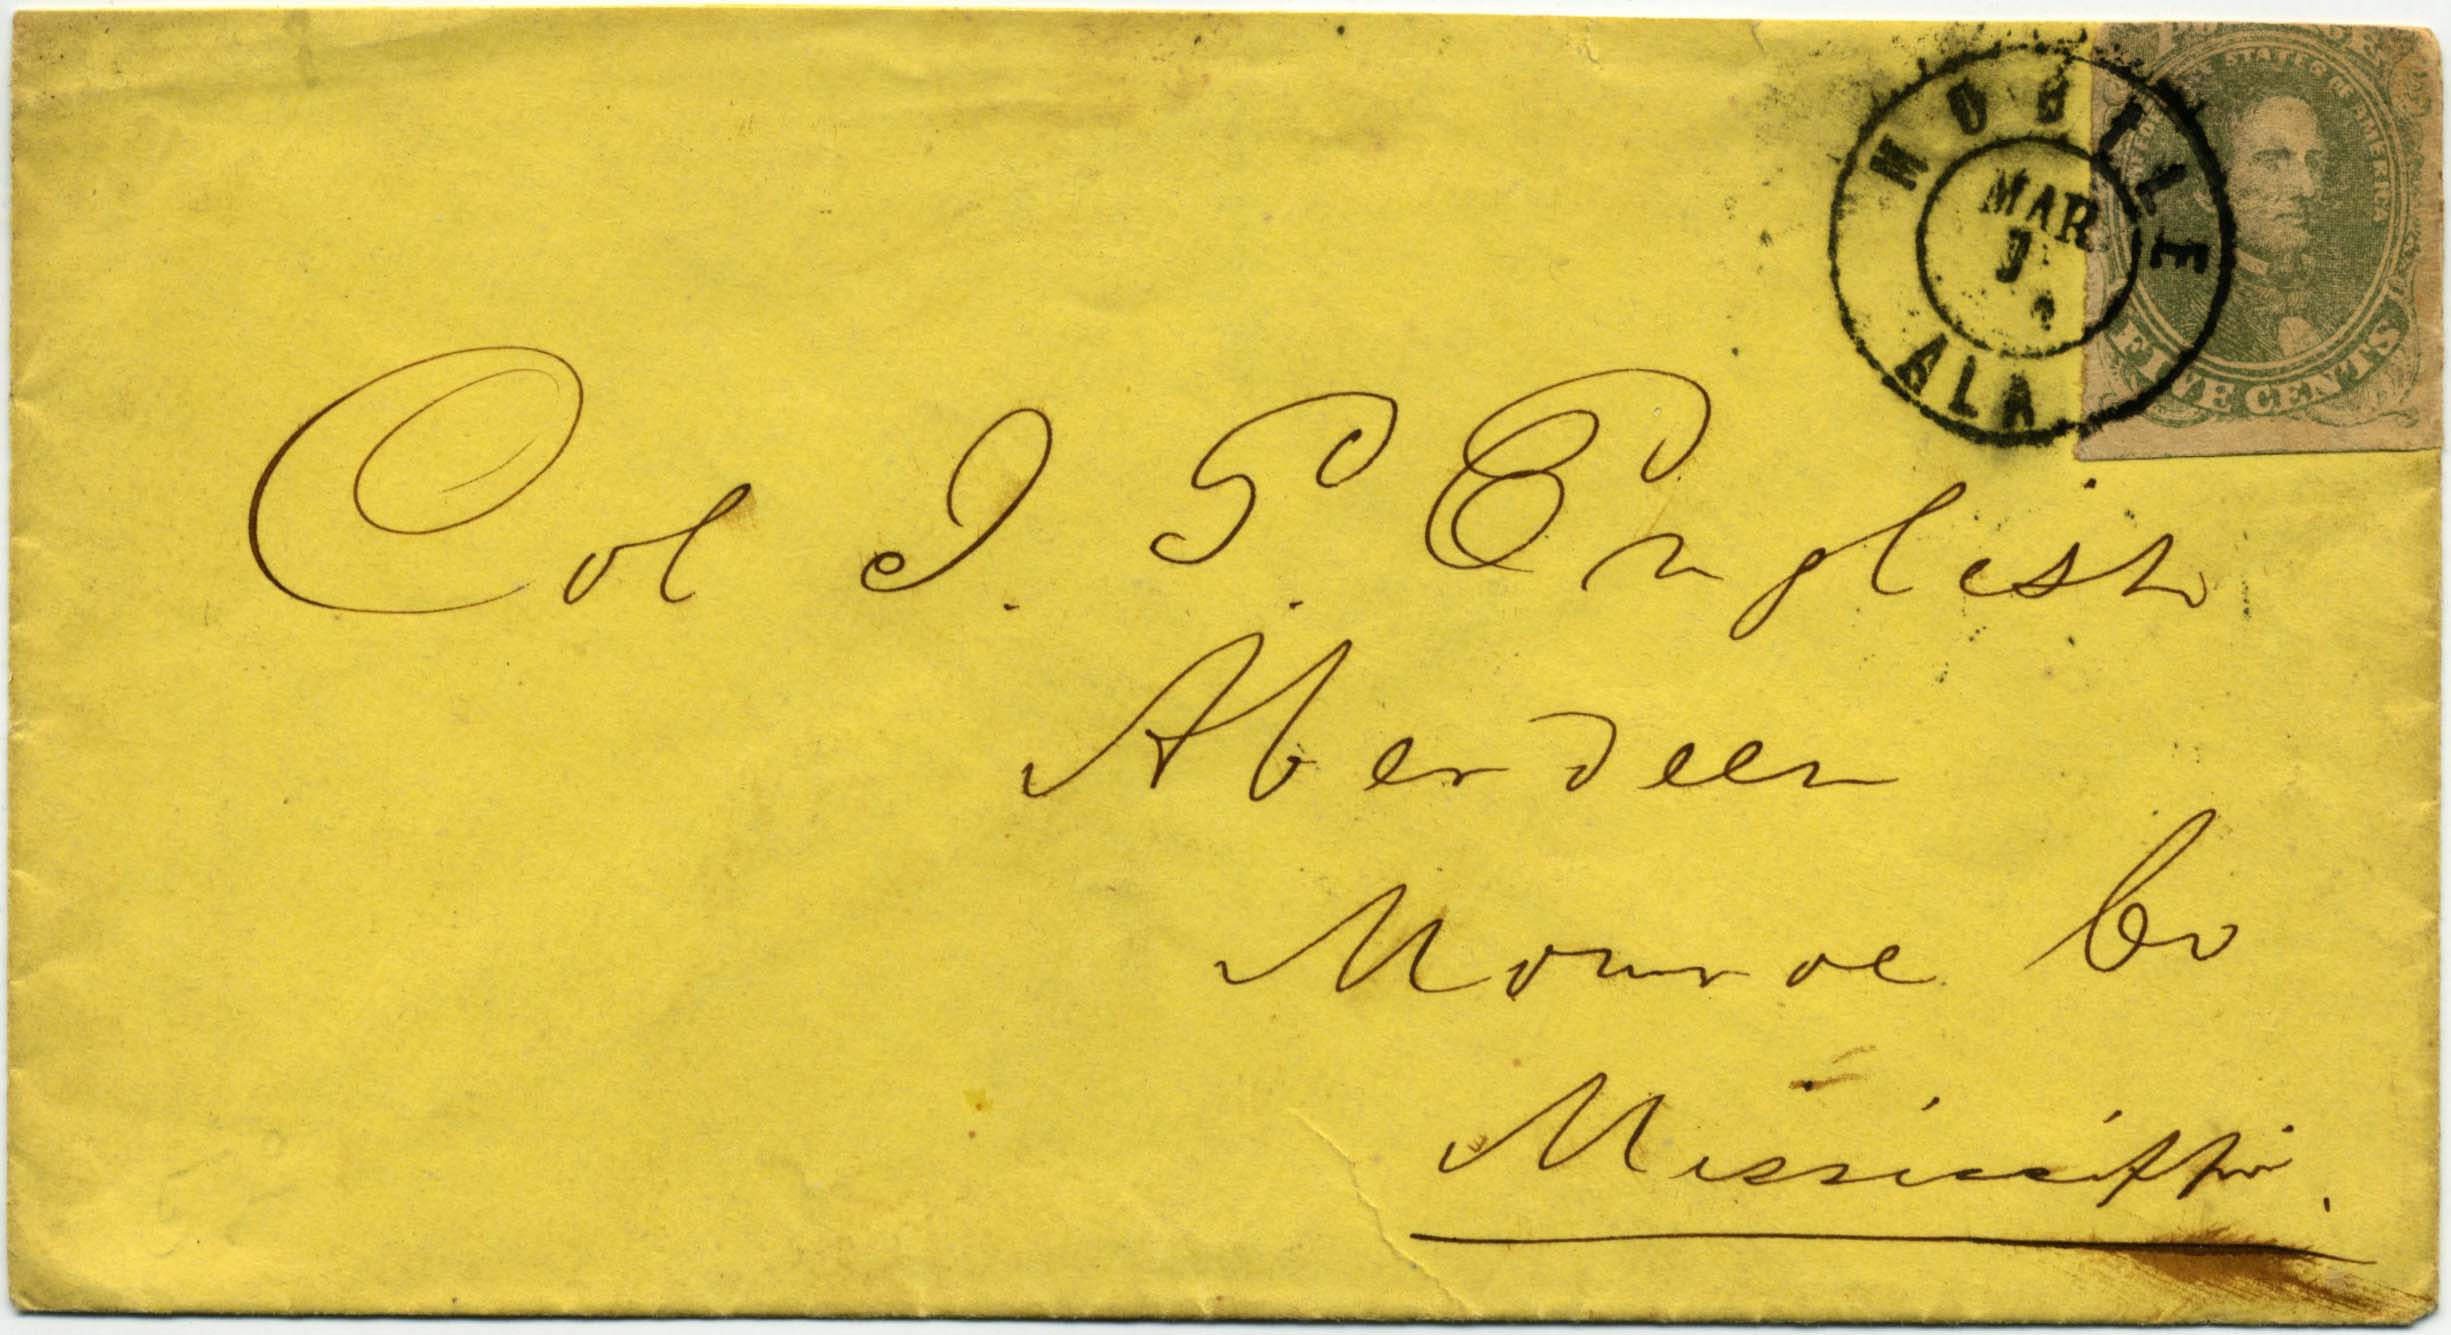 POSTAGE
STATES OF AMERICA
FIVE CENTS
MOBILE
MAR
ALA
Col I. S. English
Aberdeen
Monroe Co
Mississippi.